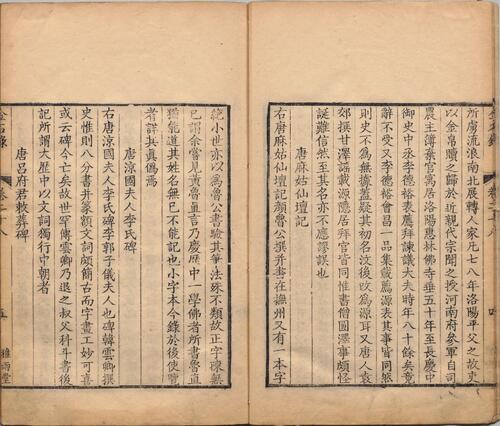 所虜流浪南北展轉人家凡七八年洛陽平父之故吏
以金帛贖之歸於近親代宗聞之授河南府參軍自司
農主簿棄官寓居洛陽惠林佛寺垂五十年至長慶中
御史中丞李德裕表薦拜諫議大夫時年八十餘矣竟
辭不受又李德裕會昌一品集載薦源表其事皆同然
則史不為無據蓋疑其初名汶後改為源耳又唐人袁
郊撰甘澤謠載源隱居拜官皆同惟書僧圓澤事頗怪
誕難信然至其名亦不應謬誤也
唐麻姑仙壇記
右唐麻姑仙壇記顏魯公撰并書在撫州又有一本字
絶小世亦以為魯公書驗其筆法殊不類故正字陳無
已謂余嘗見黃魯直言乃慶歷中一學佛者所書魯直
猶能道其姓名無已不能記也小字本今錄於後使覽
者詳其眞僞焉
唐涼國夫人李氏碑
右唐涼國夫人李氏碑李郭子儀夫人也碑韓雲卿撰
史惟則八分書并篆額文詞頗簡古而字畫工妙可喜
或云碑今亡矣故世罕傳雲卿乃退之叔父科斗書後
記所謂大歷中以文詞獨行中朝者
唐呂府君敕葬碑
金石錄
卷二十八
五
雅雨堂